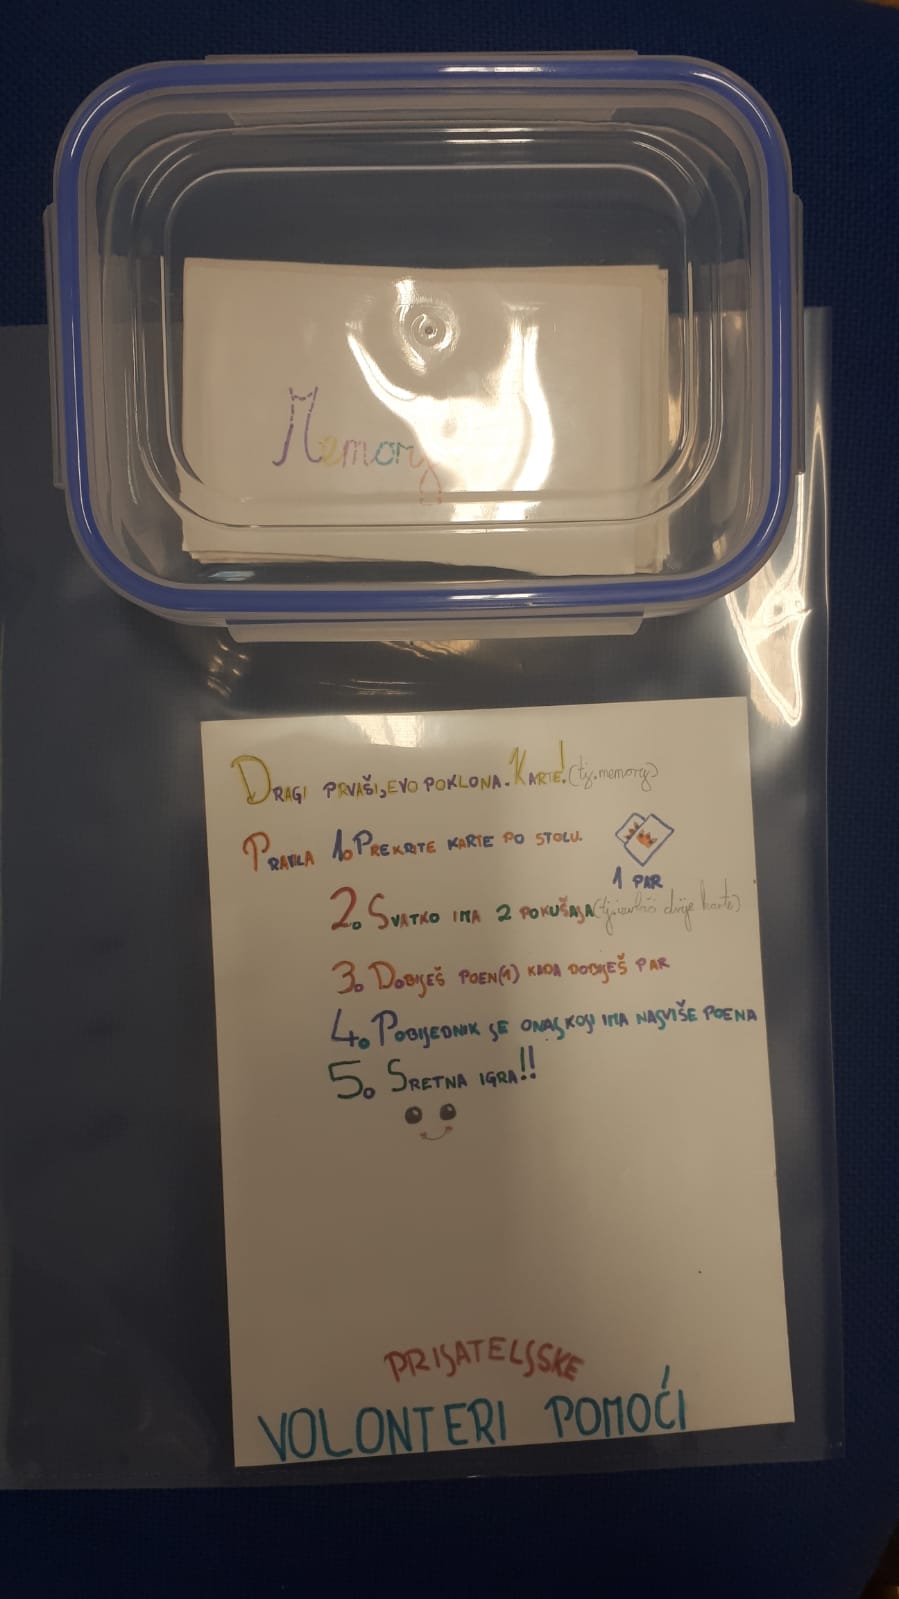 Memory
DRAGI PRVAŠI, EVO POKLONA. KARTE! (tj. memory)
PRAVILA 1. PREKRITE KARTE PO STOLU.
1 PAR
2. SVATKO IMA 2 POKUŠAJA (tj. izvlači dvije karte)
3. DOBIJEŠ POEN(1) KADA DOBIJEŠ PAR
4. POBIJEDNIK JE ONAJ KOJI IMA NAJVIŠE POENA
5. SRETNA IGRA!!
PRIJATELJSKE
VOLONTERI POMOĆI